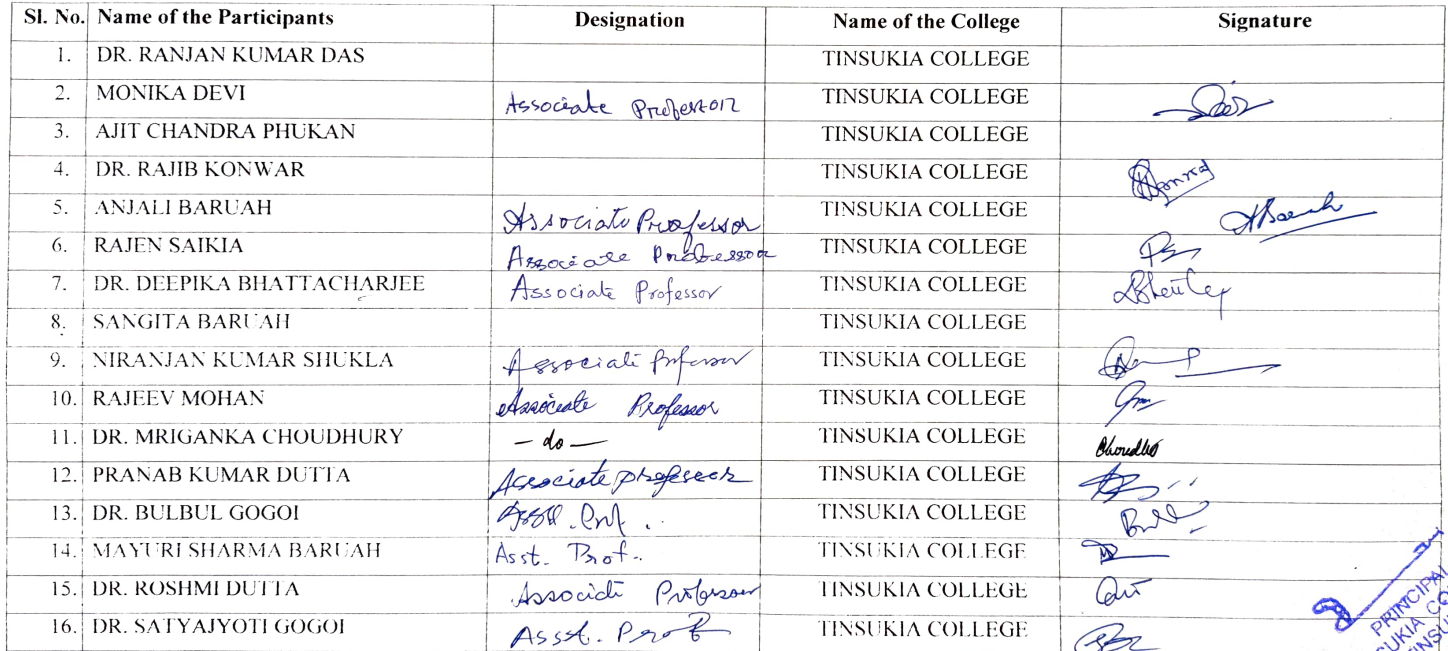 Sl. No. Name of the Participants Designation Name of the College Signature
1. DR. RANJAN KUMAR DAS TINSUKIA COLLEGE
2. MONIKA DEVI Associate Professor TINSUKIA COLLEGE
3. AJIT CHANDRA PHUKAN TINSUKIA COLLEGE
4. DR. RAJIB KONWAR TINSUKIA COLLEGE
5. ANJALI BARUAH Associate Professor TINSUKIA COLLEGE ABaruah
6. RAJEN SAIKIA Associate Professor TINSUKIA COLLEGE
7. DR. DEEPIKA BHATTACHARJEE Associate Professor TINSUKIA COLLEGE
8. SANGITA BARUAH TINSUKIA COLLEGE
9. NIRANJAN KUMAR SHUKLA Associate Professor TINSUKIA COLLEGE
10. RAJEEV MOHAN Associate Professor TINSUKIA COLLEGE
11. DR. MRIGANKA CHOUDHURY - do - TINSUKIA COLLEGE
12. PRANAB KUMAR DUTTA Associate professor TINSUKIA COLLEGE
13. DR. BULBUL GOGOI Prof. TINSUKIA COLLEGE
14. MAYURI SHARMA BARUAH Asst. Prof. TINSUKIA COLLEGE
15. DR. ROSHMI DUTTA Associate Professor TINSUKIA COLLEGE
16. DR. SATYAJYOTI GOGOI Asst. Prof TINSUKIA COLLEGE
PRINCIPAL
SUKIA CO
TINSU